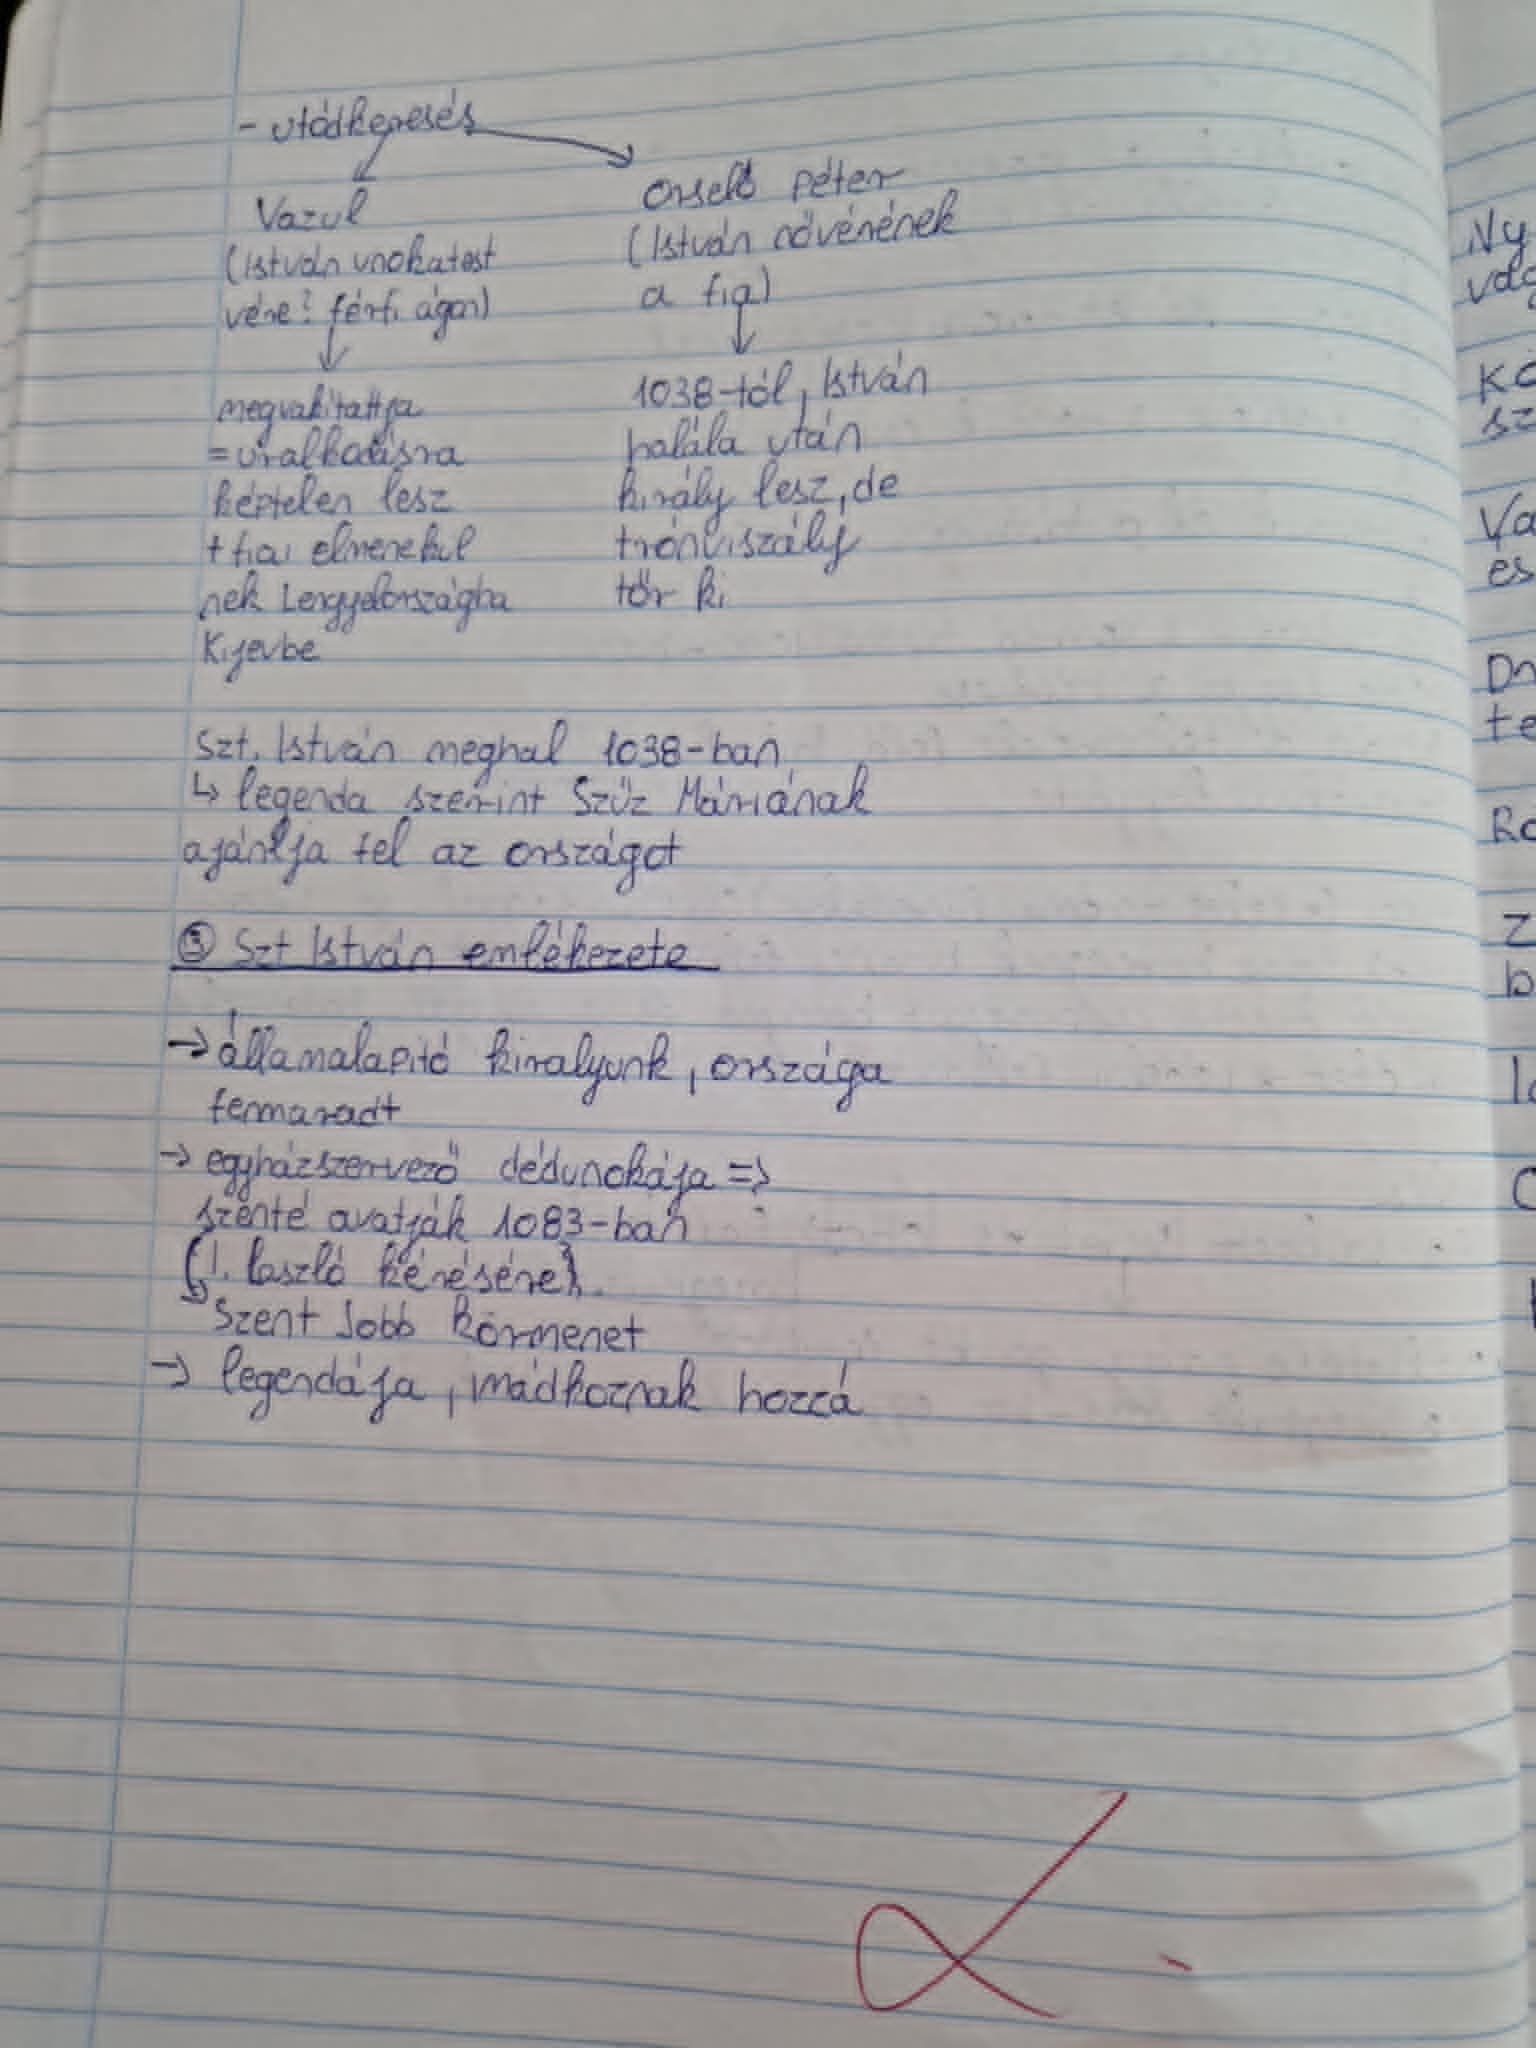 - utódkeresés
Vazul
(István unokatest
vére? férfi ágon)
megvakítattja
=uralkodásra
képtelen lesz
+ fiai elmenekül
nek Lengyelországba
Kijevbe
Orseló Péter
(István nővérének
a fia)
1038-tól, István
halála után
király lesz, de
trónviszály
tör ki
Szt. István meghal 1038-ban
↳ legenda szerint Szűz Máriának
ajánlja fel az országot
Szt István emlékezete
→ államalapító kiralyunk, országa
fennmaradt
→ egyházszervező dédunokája =>
szenté avatják 1083-ban
(I. László kérésére)
Szent Jobb körmenet
→ legendája, imádkoznak hozzá
Ny
vag
Kö
sz
Va
es
te
Z
b